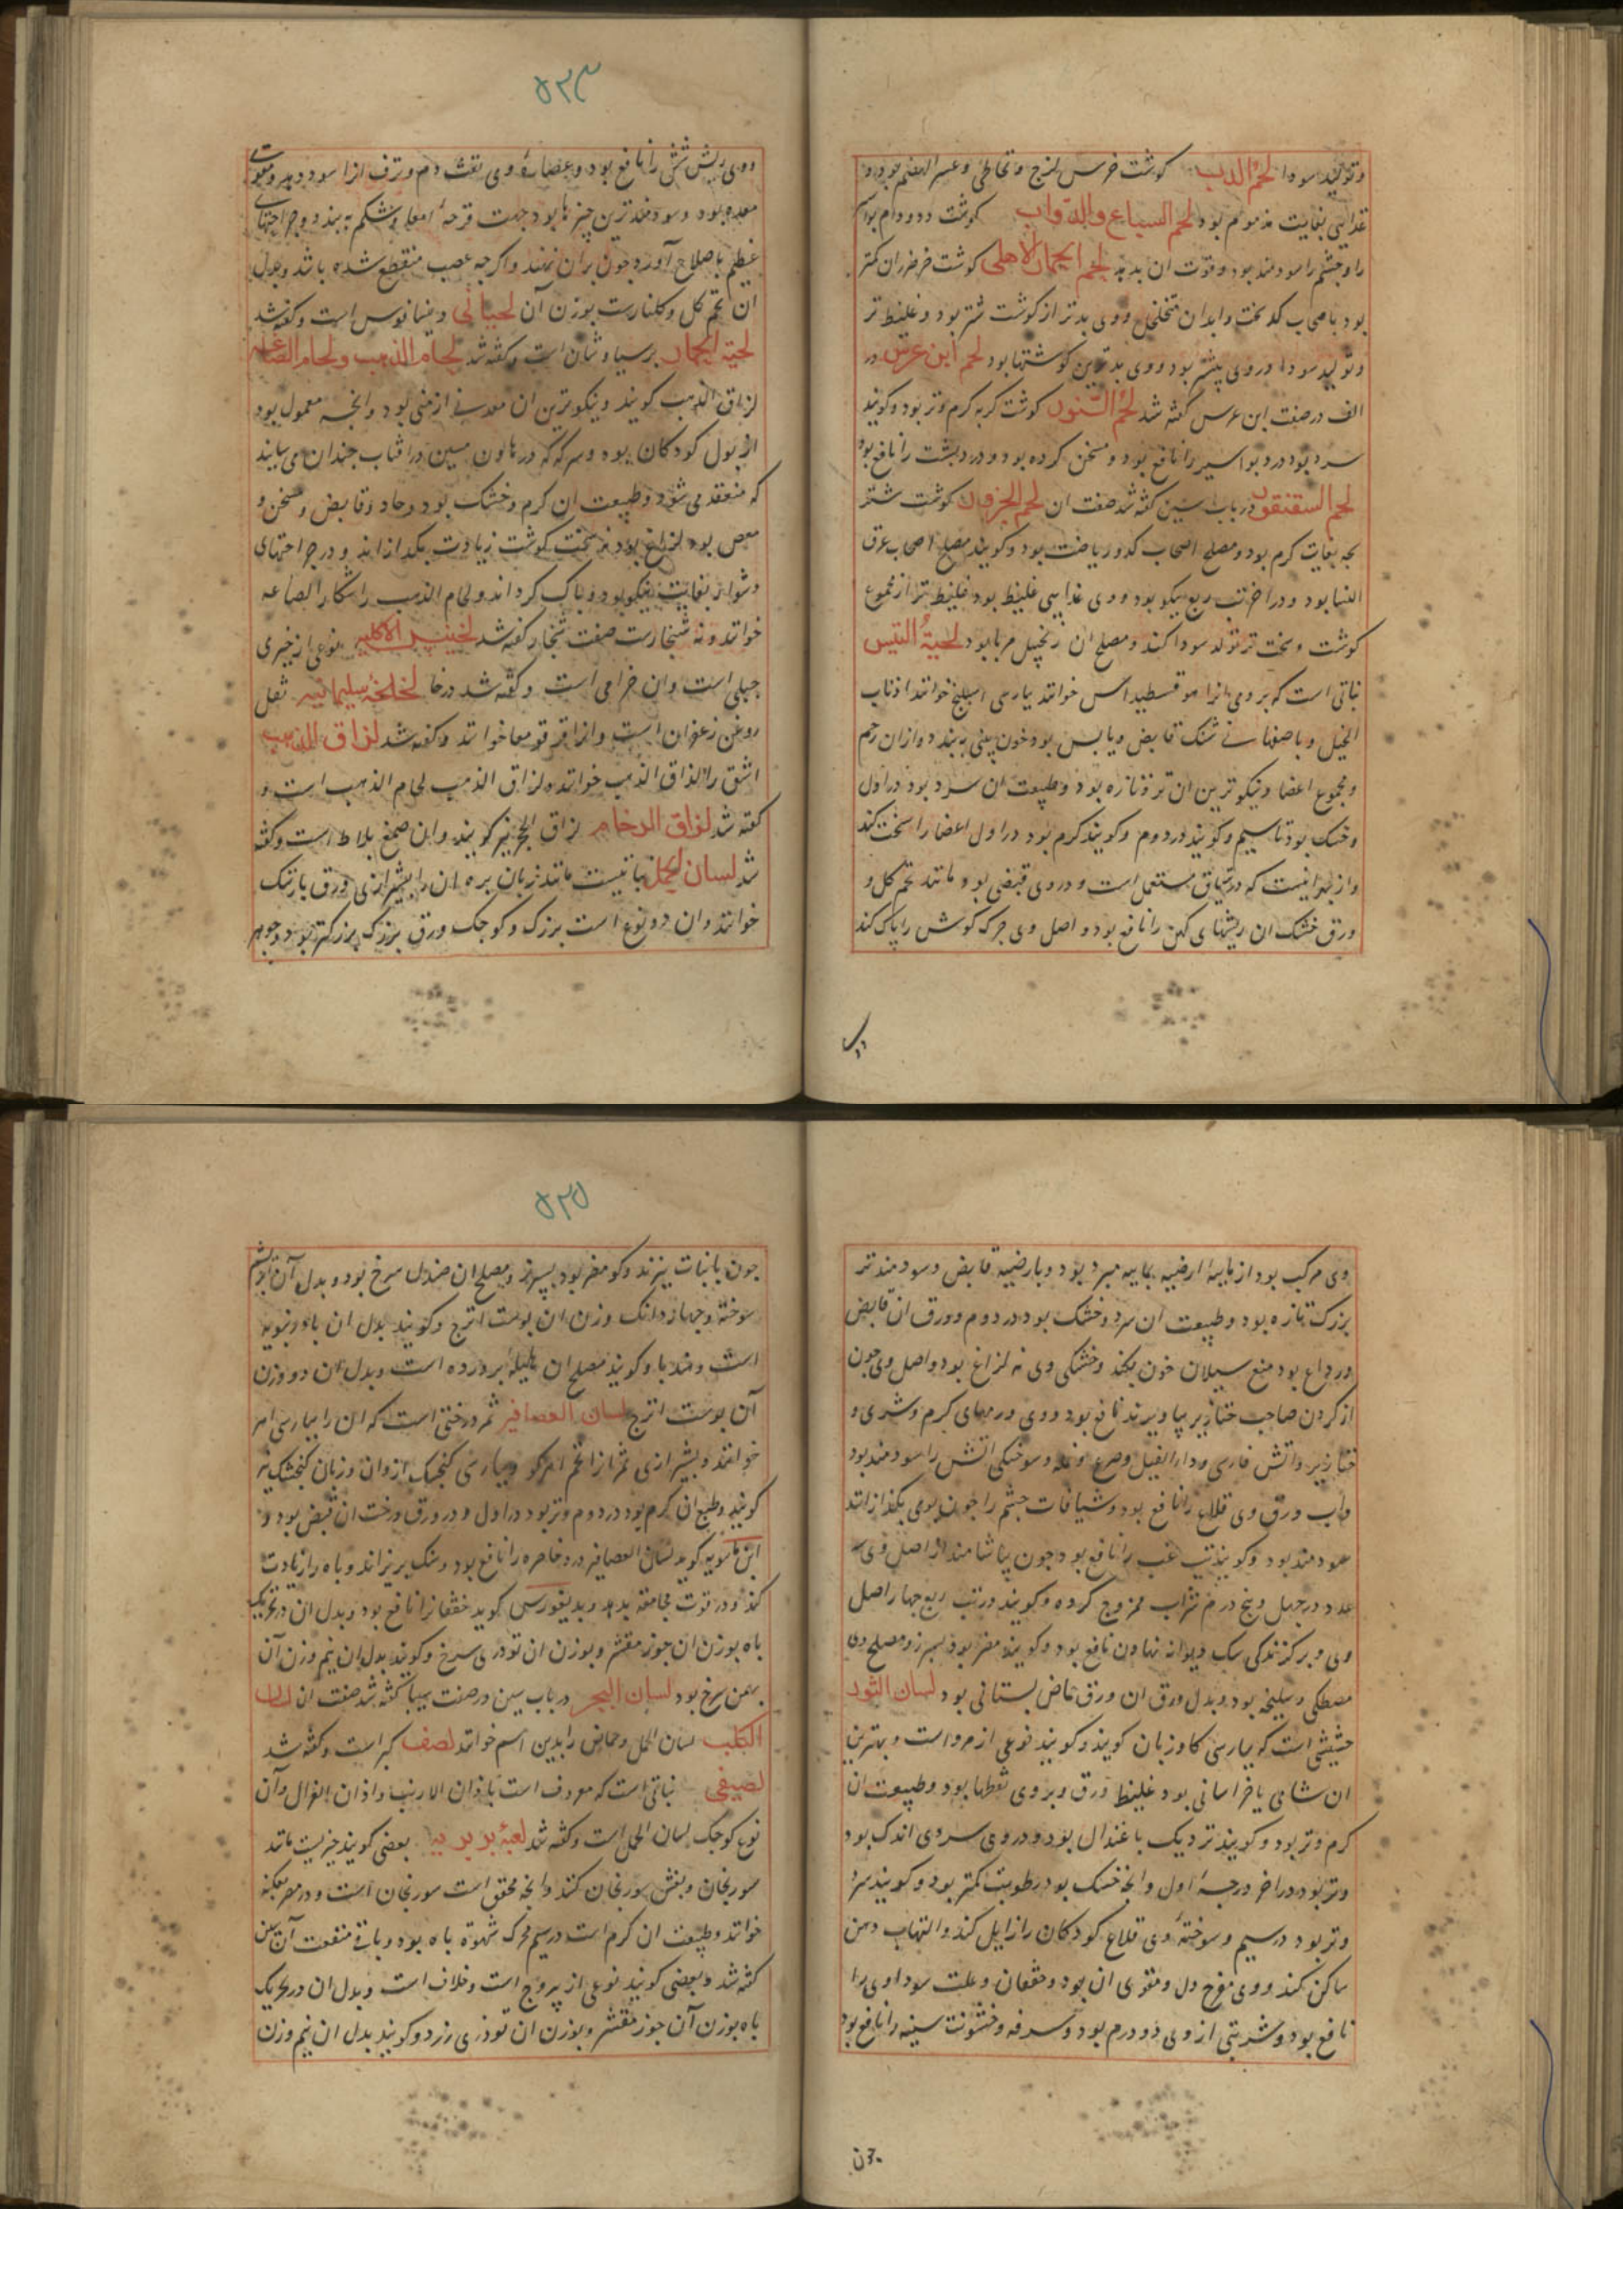 وتولید سودا لحم الدب کوشت خرس لزج ومخاطی وعسر الهضم بود و
غذایی بغایت مذموم بود لحم السباع والدواب کوشت دد ودام
را وچشم را سودمند بود وقوت ان بدید لحم الحمار الاهلی کوشت خر ضرر ان کمتر
بود باصحاب کد سخت وابدان متخلخل ووی بدتر از کوشت شتر بود وغلیظ تر
وتولید سودا در وی بیشتر بود ووی بدترین کوشتها بود لحم ابن عرس در
الف در صفت ابن عرس کفته شد لحم السنور کوشت کربه کرم وتر بود وکویند
سرد بود درد بواسیر را نافع بود ومسخن کرده بود ودرد پشت را نافع بود
لحم السقنقور در باب سین کفته شد صفت ان لحم الجزور کوشت شتر
بچه بغایت کرم بود ومصلح اصحاب کد وریاضت بود وکویند مصلح اصحاب عرق
النسا بود ودر اخر تب ربع نیکو بود ووی غذایی غلیظ بود غلیظ تر از مجموع
کوشت وسخت تر تولد سودا کند ومصلح ان زنجبیل مربا بود لحیة التیس
نباتی است که برومی انرا هوقسطیداس خوانند بپارسی اسپلنج خوانند اذناب
الخیل وباصفهانی شنک قابض ویابس بود خون بینی ببندد وازان رحم
ومجموع اعضا ونیکوترین ان تر وتازه بود وطبیعت ان سرد بود در اول
وخشک بود تا سیم وکویند در دوم وکویند کرم بود در اول اعضا را سخت کند
واز بهر انیست که در تریاق مستعمل است ودر وی قبضی بود مانند تخم کل و
ورق خشک ان ریشهای کهن را نافع بود واصل وی چرک کوش را پاک کند
۵۲۴
ووی ریش شش را نافع بود وعصاره وی نفث دم ونزف انرا سود دهد ومقوی
معده بود وسودمندترین چیزها بود جهت قرحه امعا وشکم ببندد وجراحتهای
عظیم باصلاح آورد چون بران نهند واکرچه عصب منقطع شده باشد وبدل
ان تخم کل وکلنارست بوزن آن لحیانی دینمانوس است وکفته شد
لحیة الحمار برسیاوشان است وکفته شد لحام الذهب ولحام الصاغه
لزاق الذهب کویند ونیکوترین ان معدنی ارمنی بود وانچه معمول بود
از بول کودکان بود وسرکه که در هاون مسین در افتاب چندان می سایند
که منعقد می شود وطبیعت ان کرم وخشک بود وحاد وقابض ومسخن و
معص بود لزاع بود نه سخت کوشت زیادت بکدازاند ودر جراحتهای
دشوار بغایت نیکو بود وپاک کرداند ولحام الذهب را شنکار الصاغه
خوانند ونه شنجارست صفت شنجار کفته شد لخنیس الاکلیه نوعی از خیری
جبلی است وان خزامی است وکفته شد در خا لخلخة سلیمانیه ثفل
روغن زعفران است وانرا قرقومعا خوانند وکفته شد لزاق الذهب
اشق را لزاق الذهب خوانند ولزاق الذهب لحام الذهب است و
کفته شد لزاق الرخام لزاق الحجر نیز کویند وان صمغ بلاط است وکفته
شد لسان الحمل نباتیست مانند زبان بره ان را بشیرازی ورق بارتنک
خوانند وان دو نوع است بزرک وکوچک ورق بزرک بزرکتر بود وجوهر
وی مرکب بود از مایه ارضیه بمایه مبرد بود وبارضیه قابض وسودمندتر
بزرک تازه بود وطبیعت ان سرد وخشک بود در دوم وورق ان قابض
ورداع بود منع سیلان خون بکند وخشکی وی نه لزاع بود واصل وی چون
از کردن صاحب خنازیر بیاویزند نافع بود ووی ورمهای کرم وشری و
خنازیر واتش فارسی وداء الفیل وصرع ونمله وسوختکی اتش را سودمند بود
واب ورق وی قلاع را نافع بود وشیافات چشم را چون بوی بکدازانند
سودمند بود وکویند تب غب را نافع بود چون بیاشامند از اصل وی سه
عدد در چهل وپنج درم شراب ممزوج کرده وکویند در تب ربع چهار اصل
وی وبرکزندکی سک دیوانه نهادن نافع بود وکویند مضر بود بسپرز ومصلح وی
مصطکی وسلیخه بود وبدل ورق ان ورق حماض بستانی بود لسان الثور
حشیشی است که بپارسی کاوزبان کویند وکویند نوعی از مرو است وبهترین
ان شامی یا خراسانی بود غلیظ ورق وبر وی نقطها بود وطبیعت ان
کرم وتر بود وکویند نزدیک باعتدال بود ودر وی سردی اندک بود
وتر بود در اخر درجه اول وانچه خشک بود رطوبت کمتر بود وکویند سرد
وتر بود در سیم وسوخته وی قلاع کودکان را زایل کند والتهاب دهن
ساکن کند ووی مفرح دل ومقوی ان بود وخفقان وعلت سوداوی را
نافع بود وشربتی از وی دو درم بود وسرفه وخشونت سینه را نافع بود
چون
۵۲۵
چون با نبات بپزند وکو مضر بود بسپرز ومصلح ان صندل سرخ بود وبدل آن ابریشم
سوخته وچهار دانک وزن ان پوست اترج وکویند بدل ان بادرنبویه
است وکویند مصلح ان هلیله پرورده است وبدل ان دو وزن
آن پوست اترج لسان العصافیر ثمر درختی است که ان را بپارسی اهر
خوانند وبشیرازی تخم اهر کو وبپارسی کنجشک زوان وزبان کنجشک نیز
کویند وطبع ان کرم بود در دوم وتر بود در اول ودر ورق درخت ان قبض بود و
ابن ماسویه کوید لسان العصافیر درد خاصره را نافع بود وسنک بریزاند وباه را زیادت
کند ودر قوت مجامعة بدهد ودیسقوریدس کوید خفقانرا نافع بود وبدل ان در تحریک
باه بوزن ان جوز مقشر وبوزن ان تودری سرخ وکویند بدل ان نیم وزن آن
بهمن سرخ بود لسان البحر در باب سین در صفت سیبیا کفته شد صفت ان لسان
الکلب لسان الحمل وحماض را بدین اسم خوانند لصف کبر است وکفته شد
لصیفی نباتی است که معروف است باذان الارنب واذان الغزال وآن
نوع کوچک لسان الحمل است وکفته شد لعبة بربریه بعضی کویند چیزیست مانند
سورنجان وبغش سورنجان کنند وانچه محقق است سورنجان است ودر مصر عکنه
خوانند وطبیعت ان کرم است در سیم محرک شهوة باه بود وباقی منفعت آن در سین
کفته شد وبعضی کویند نوعی از یبروج است وخلاف است وبدل ان در تحریک
باه بوزن آن جوز مقشر وبوزن ان تودری زرد وکویند بدل ان نیم وزن